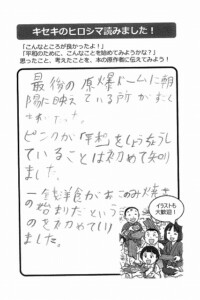 キセキのヒロシマ読みました！
「こんなところが良かったよ！」
「平和のために、こんなことを始めてみようかな？」
思ったこと、考えたことを、本の原作者に伝えてみよう！
最後の原爆ドームに朝
陽に映えている所が
ピンクが「平和」をしょうちょう
していることは初めて知り
ました。
一銭洋食がおこのみ焼き
の始まりだという
のを初めて知り
ました。
イラストも
大歓迎！